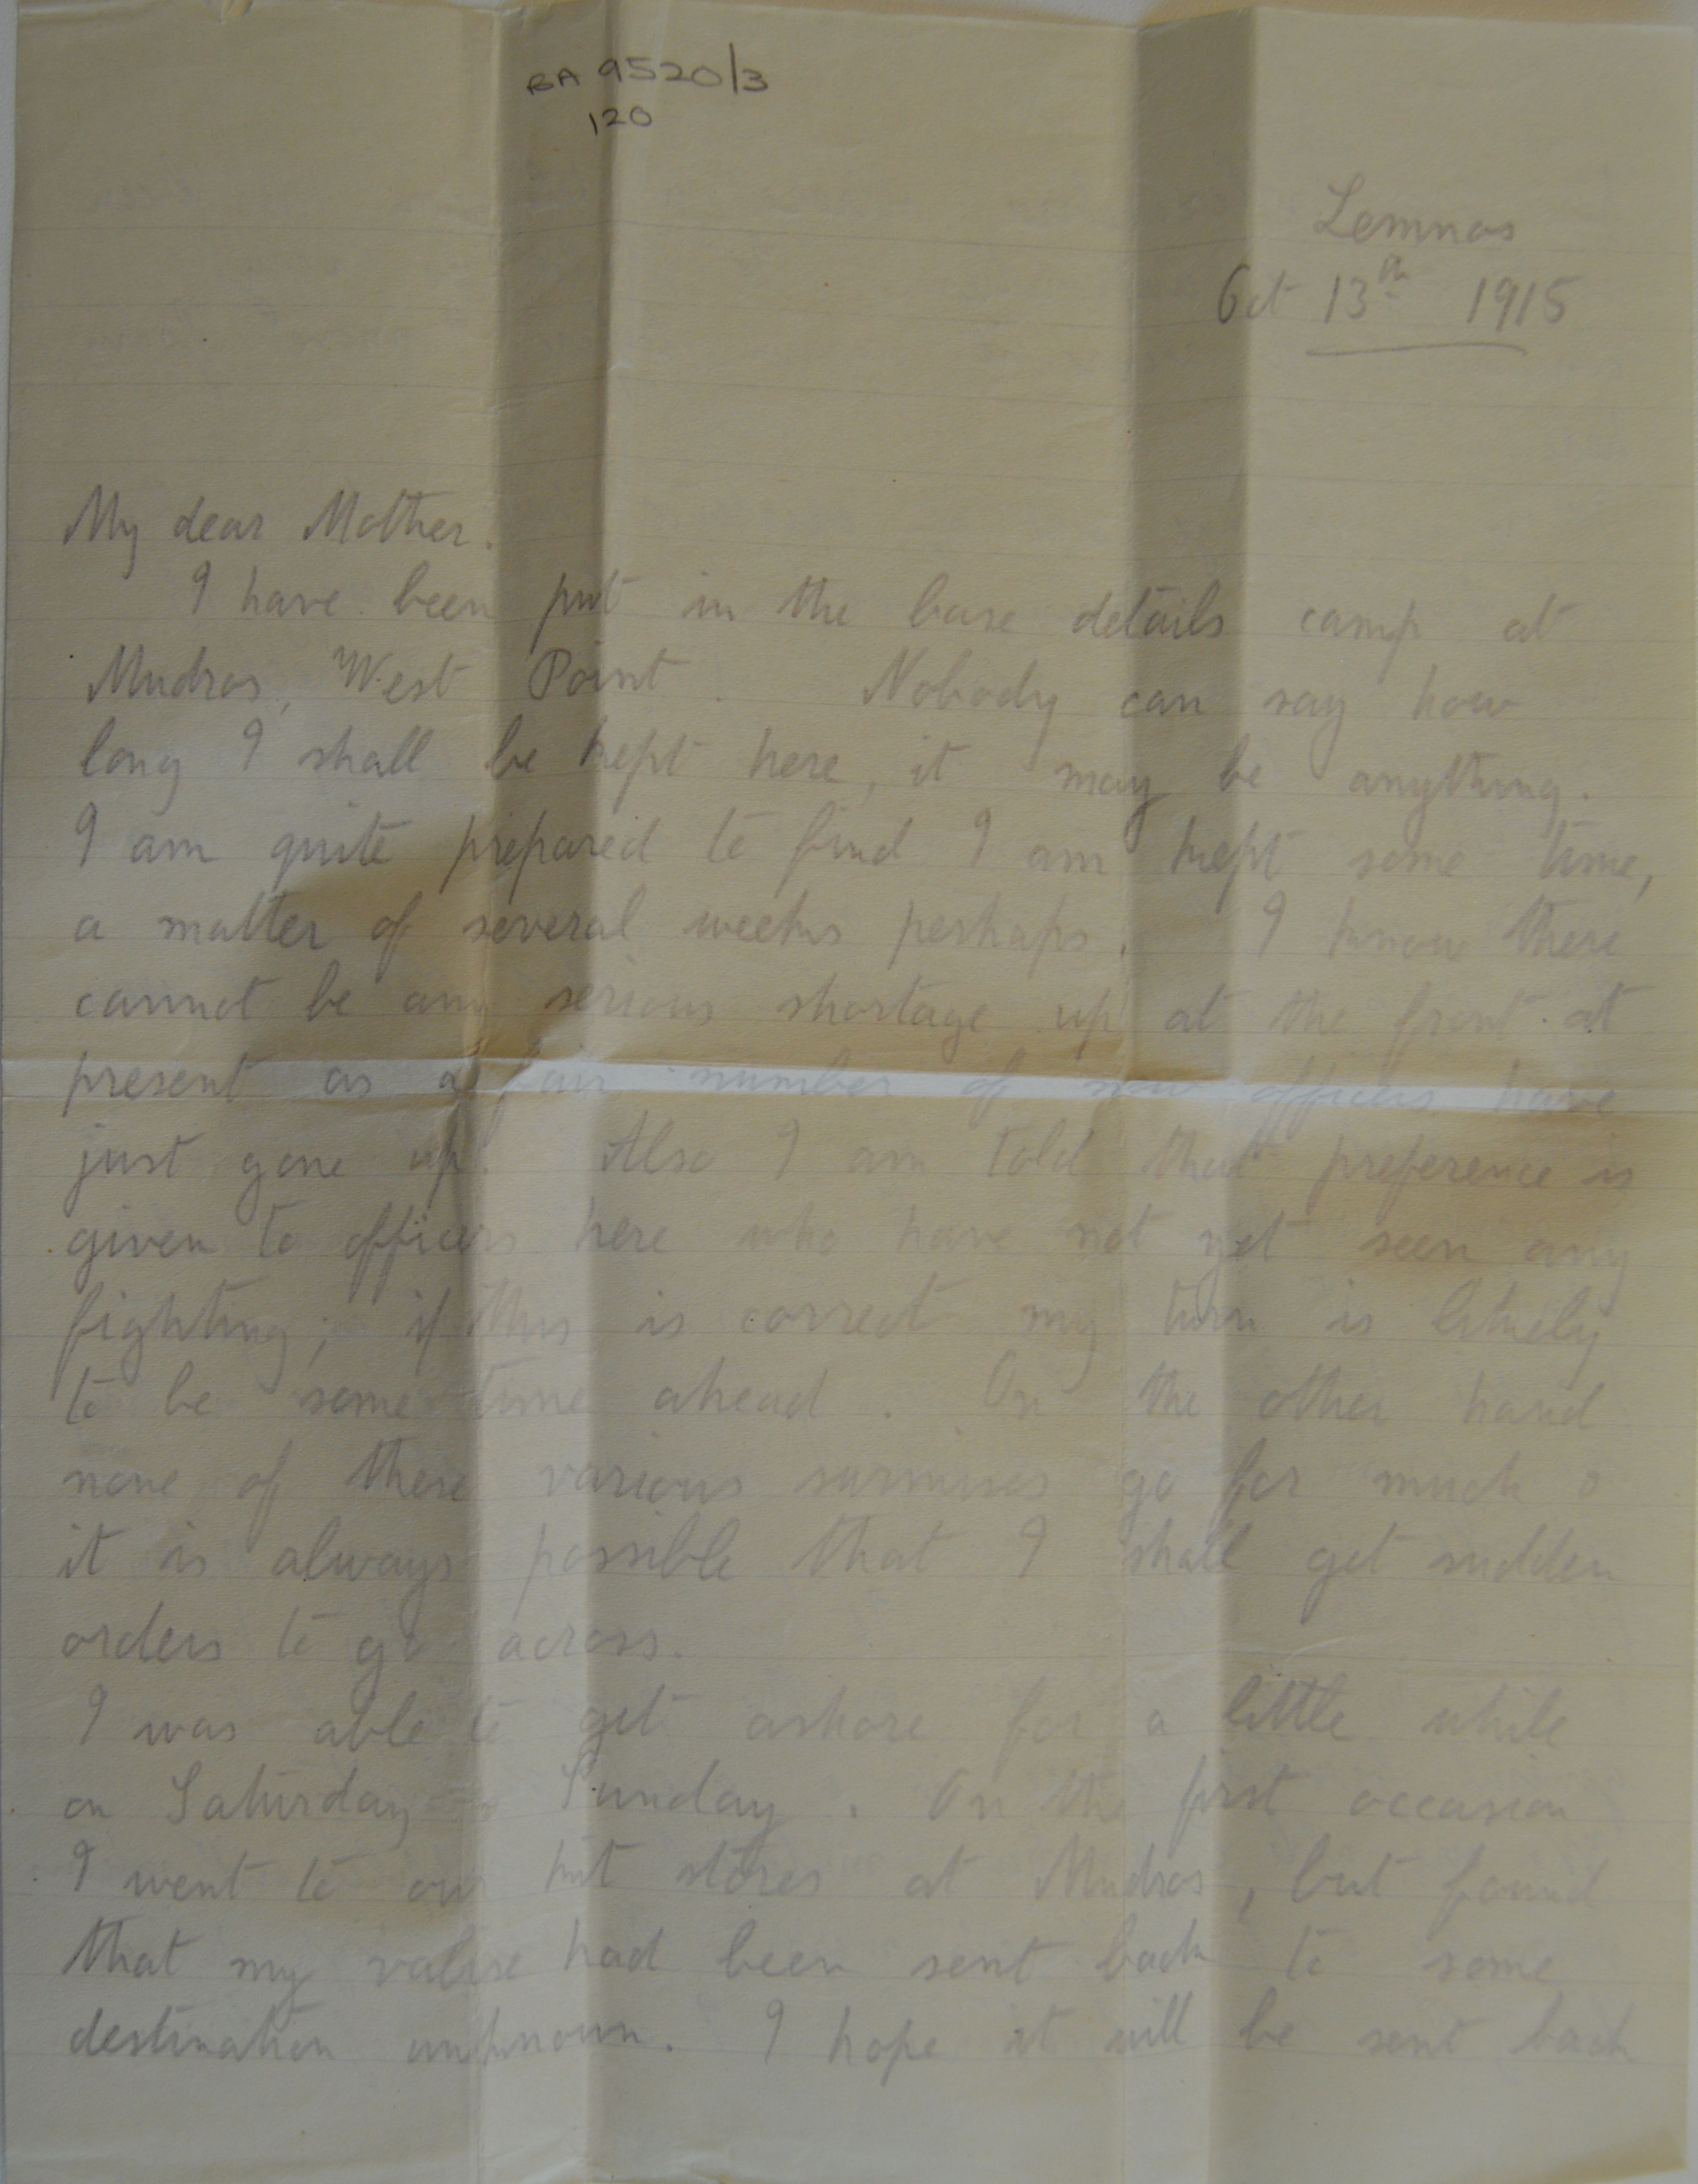 BA 9520/3
120
Lemnos
Oct 13th 1915
My dear Mother.
I have been put in the base details camp at
Mudros, West Point. Nobody can say how
long I shall be kept here, it may be anything.
I am quite prepared to find I am kept some time,
a matter of several weeks perhaps. I know there
cannot be any serious shortage up at the front at
present as a fair number of new officers have
just gone up. Also I am told that preference is
given to officers here who have not yet seen any
fighting; if this is correct my turn is likely
to be some time ahead. On the other hand
none of these various surmises go for much &
it is always possible that I shall get sudden
orders to go across.
I was able to get ashore for a little while
on Saturday & Sunday. On the first occasion
I went to our kit stores at Mudros, but found
that my valise had been sent back to some
destination unknown. I hope it will be sent back